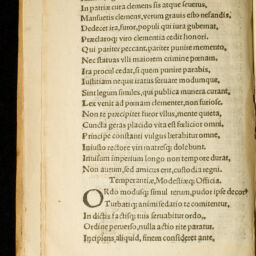 In patriæ cura clemens sis atque seuerus,
Mansuetis clemens, verum grauis esto nefandis.
Dedecet ira, furor, populi qui iura gubernat,
Præclaroq; viro clementia cedit honori.
Qui pariter peccant, pariter punire memento,
Nec statuas vlli maiorem crimine pœnam.
Ira procul cedat, si quem punire parabis,
Iustitiam neque iratus seruare modumque,
Sint legum similes, qui publica munera curant,
Lex venit ad pœnam clementer, non furiose.
Non te præcipitet furor vllus, mente quieta,
Cuncta geras placido vita est fœlicior omni.
Principe constanti vulgus letabitur omne,
Iniusto rectore viri matresq; dolebunt.
Inuisum imperium longo non tempore durat,
Non aurum, sed amicus erit, custodia regni.
Temperantiæ, Modestiæq; Officia.
ORdo modusq; simul rerum, pudor ipse decorq;
Turbati q; animi sedatio te comitentur,
In dictis factisq; tuis seruabitur ordo,
Ordine peruerso, nulla actio rite paratur.
Incipiens aliquid, finem consideret ante,